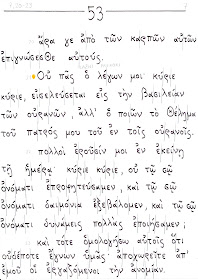 53
ἄρα γε ἀπὸ τῶν καρπῶν αὐτῶν
ἐπιγνώσεσθε αὐτούς.
Οὐ πᾶς ὁ λέγων μοι κύριε
κύριε, εἰσελεύσεται εἰς τὴν βασιλείαν
τῶν οὐρανῶν, ἀλλ' ὁ ποιῶν τὸ θέλημα
τοῦ πατρός μου τοῦ ἐν τοῖς οὐρανοῖς.
πολλοὶ ἐροῦσίν μοι ἐν ἐκείνῃ
τῇ ἡμέρᾳ· κύριε κύριε, οὐ τῷ σῷ
ὀνόματι ἐπροφητεύσαμεν, καὶ τῷ σῷ
ὀνόματι δαιμόνια ἐξεβάλομεν, καὶ τῷ σῷ
ὀνόματι δυνάμεις πολλὰς ἐποιήσαμεν;
καὶ τότε ὁμολογήσω αὐτοῖς ὅτι
οὐδέποτε ἔγνων ὑμᾶς· ἀποχωρεῖτε ἀπ'
ἐμοῦ οἱ ἐργαζόμενοι τὴν ἀνομίαν.